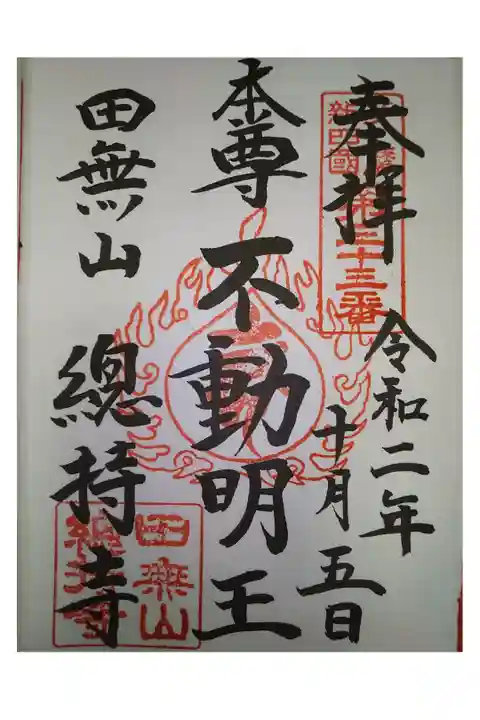 奉拝
令和二年
十月五日
本尊
不動明王
田無山
總持寺
第三十三番
田無山
總持寺